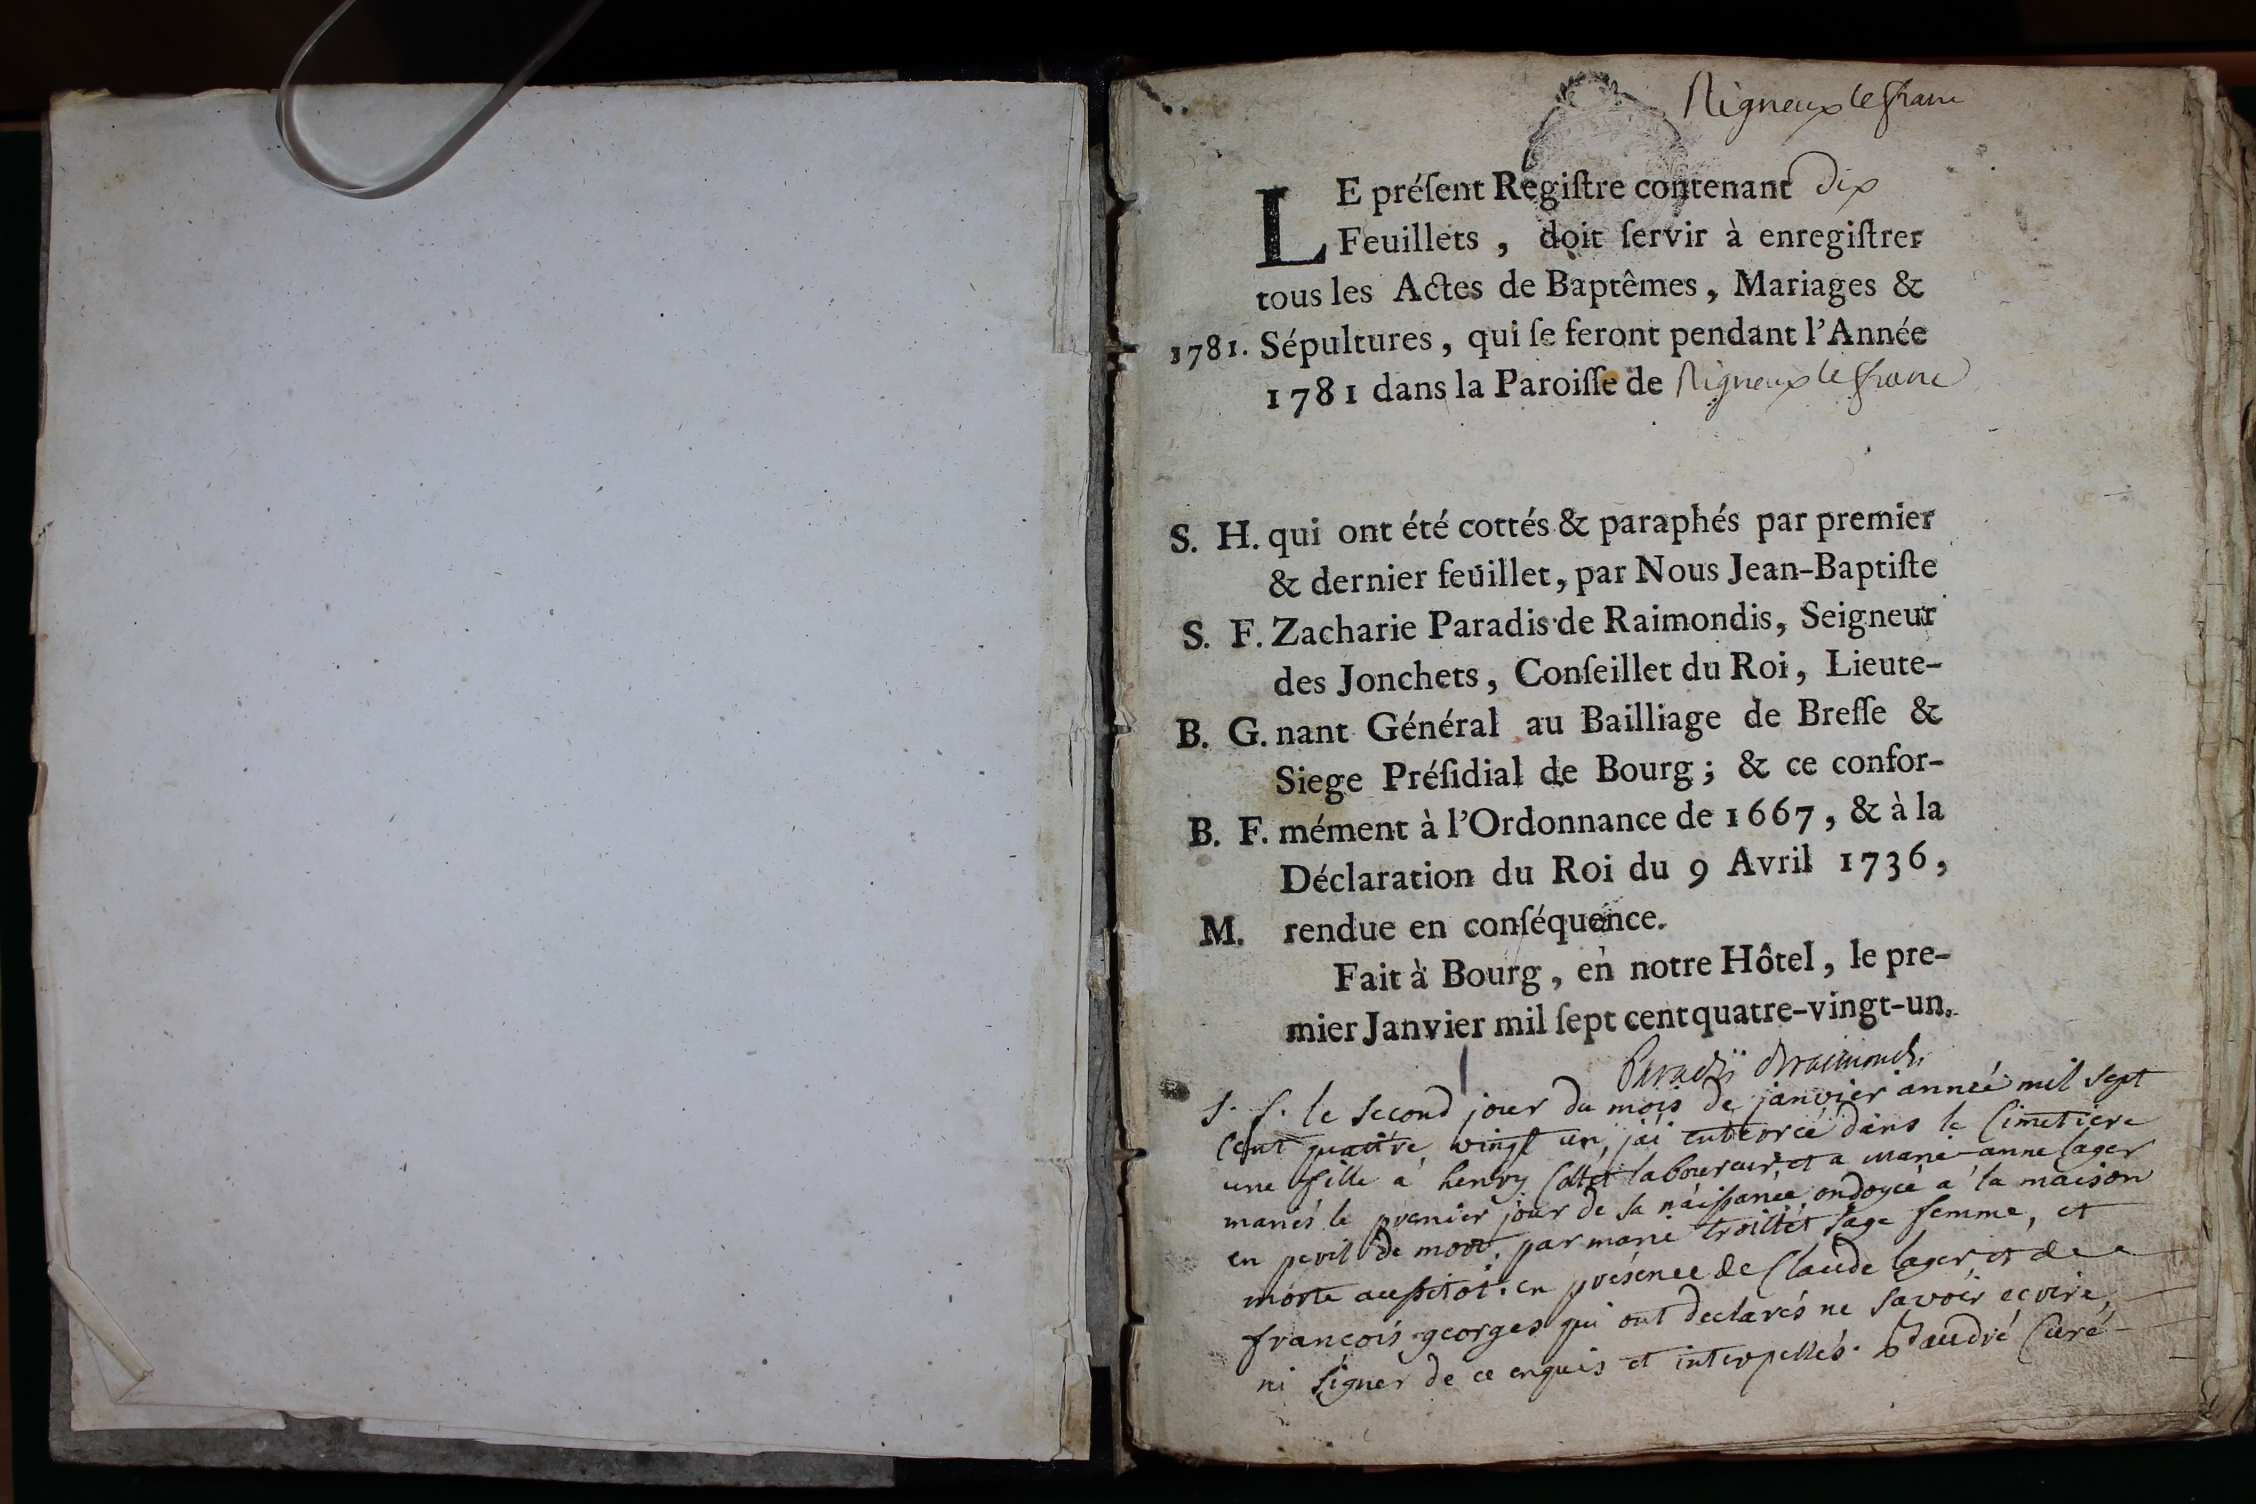 Rigneux le franc
LE préſent Regiſtre contenant dix
Feuillets, doit ſervir à enregiſtrer
tous les Actes de Baptêmes, Mariages &
1781. Sépultures, qui ſe feront pendant l'Année
1781 dans la Paroiſſe de Rigneux le franc
S. H. qui ont été cottés & paraphés par premier
& dernier feuillet, par Nous Jean-Baptiſte
S. F. Zacharie Paradis de Raimondis, Seigneur
des Jonchets, Conſeillet du Roi, Lieute-
B. G. nant Général au Bailliage de Breſſe &
Siege Préſidial de Bourg; & ce confor-
B. F. mément à l'Ordonnance de 1667, & à la
Déclaration du Roi du 9 Avril 1736,
M. rendue en conſéquence.
Fait à Bourg, en notre Hôtel, le pre-
mier Janvier mil ſept cent quatre-vingt-un.
Paradis Draimondis
s. f. le second jour du mois de janvier année mil sept
cent quattre vingt un, j'ai enterrée dans le cimetiere
une fille à henry Collet laboureur, et a marie anne lager
mariés le premier jour de sa naissance ondoyée a la maison
en peril de mort par marie troillet sage femme, et
morte aussitot. en présence de Claude lager et de
françois georges qui ont declarés ne savoir ecrire,
ni signer de ce enquis et interpellés. Daudré Curé